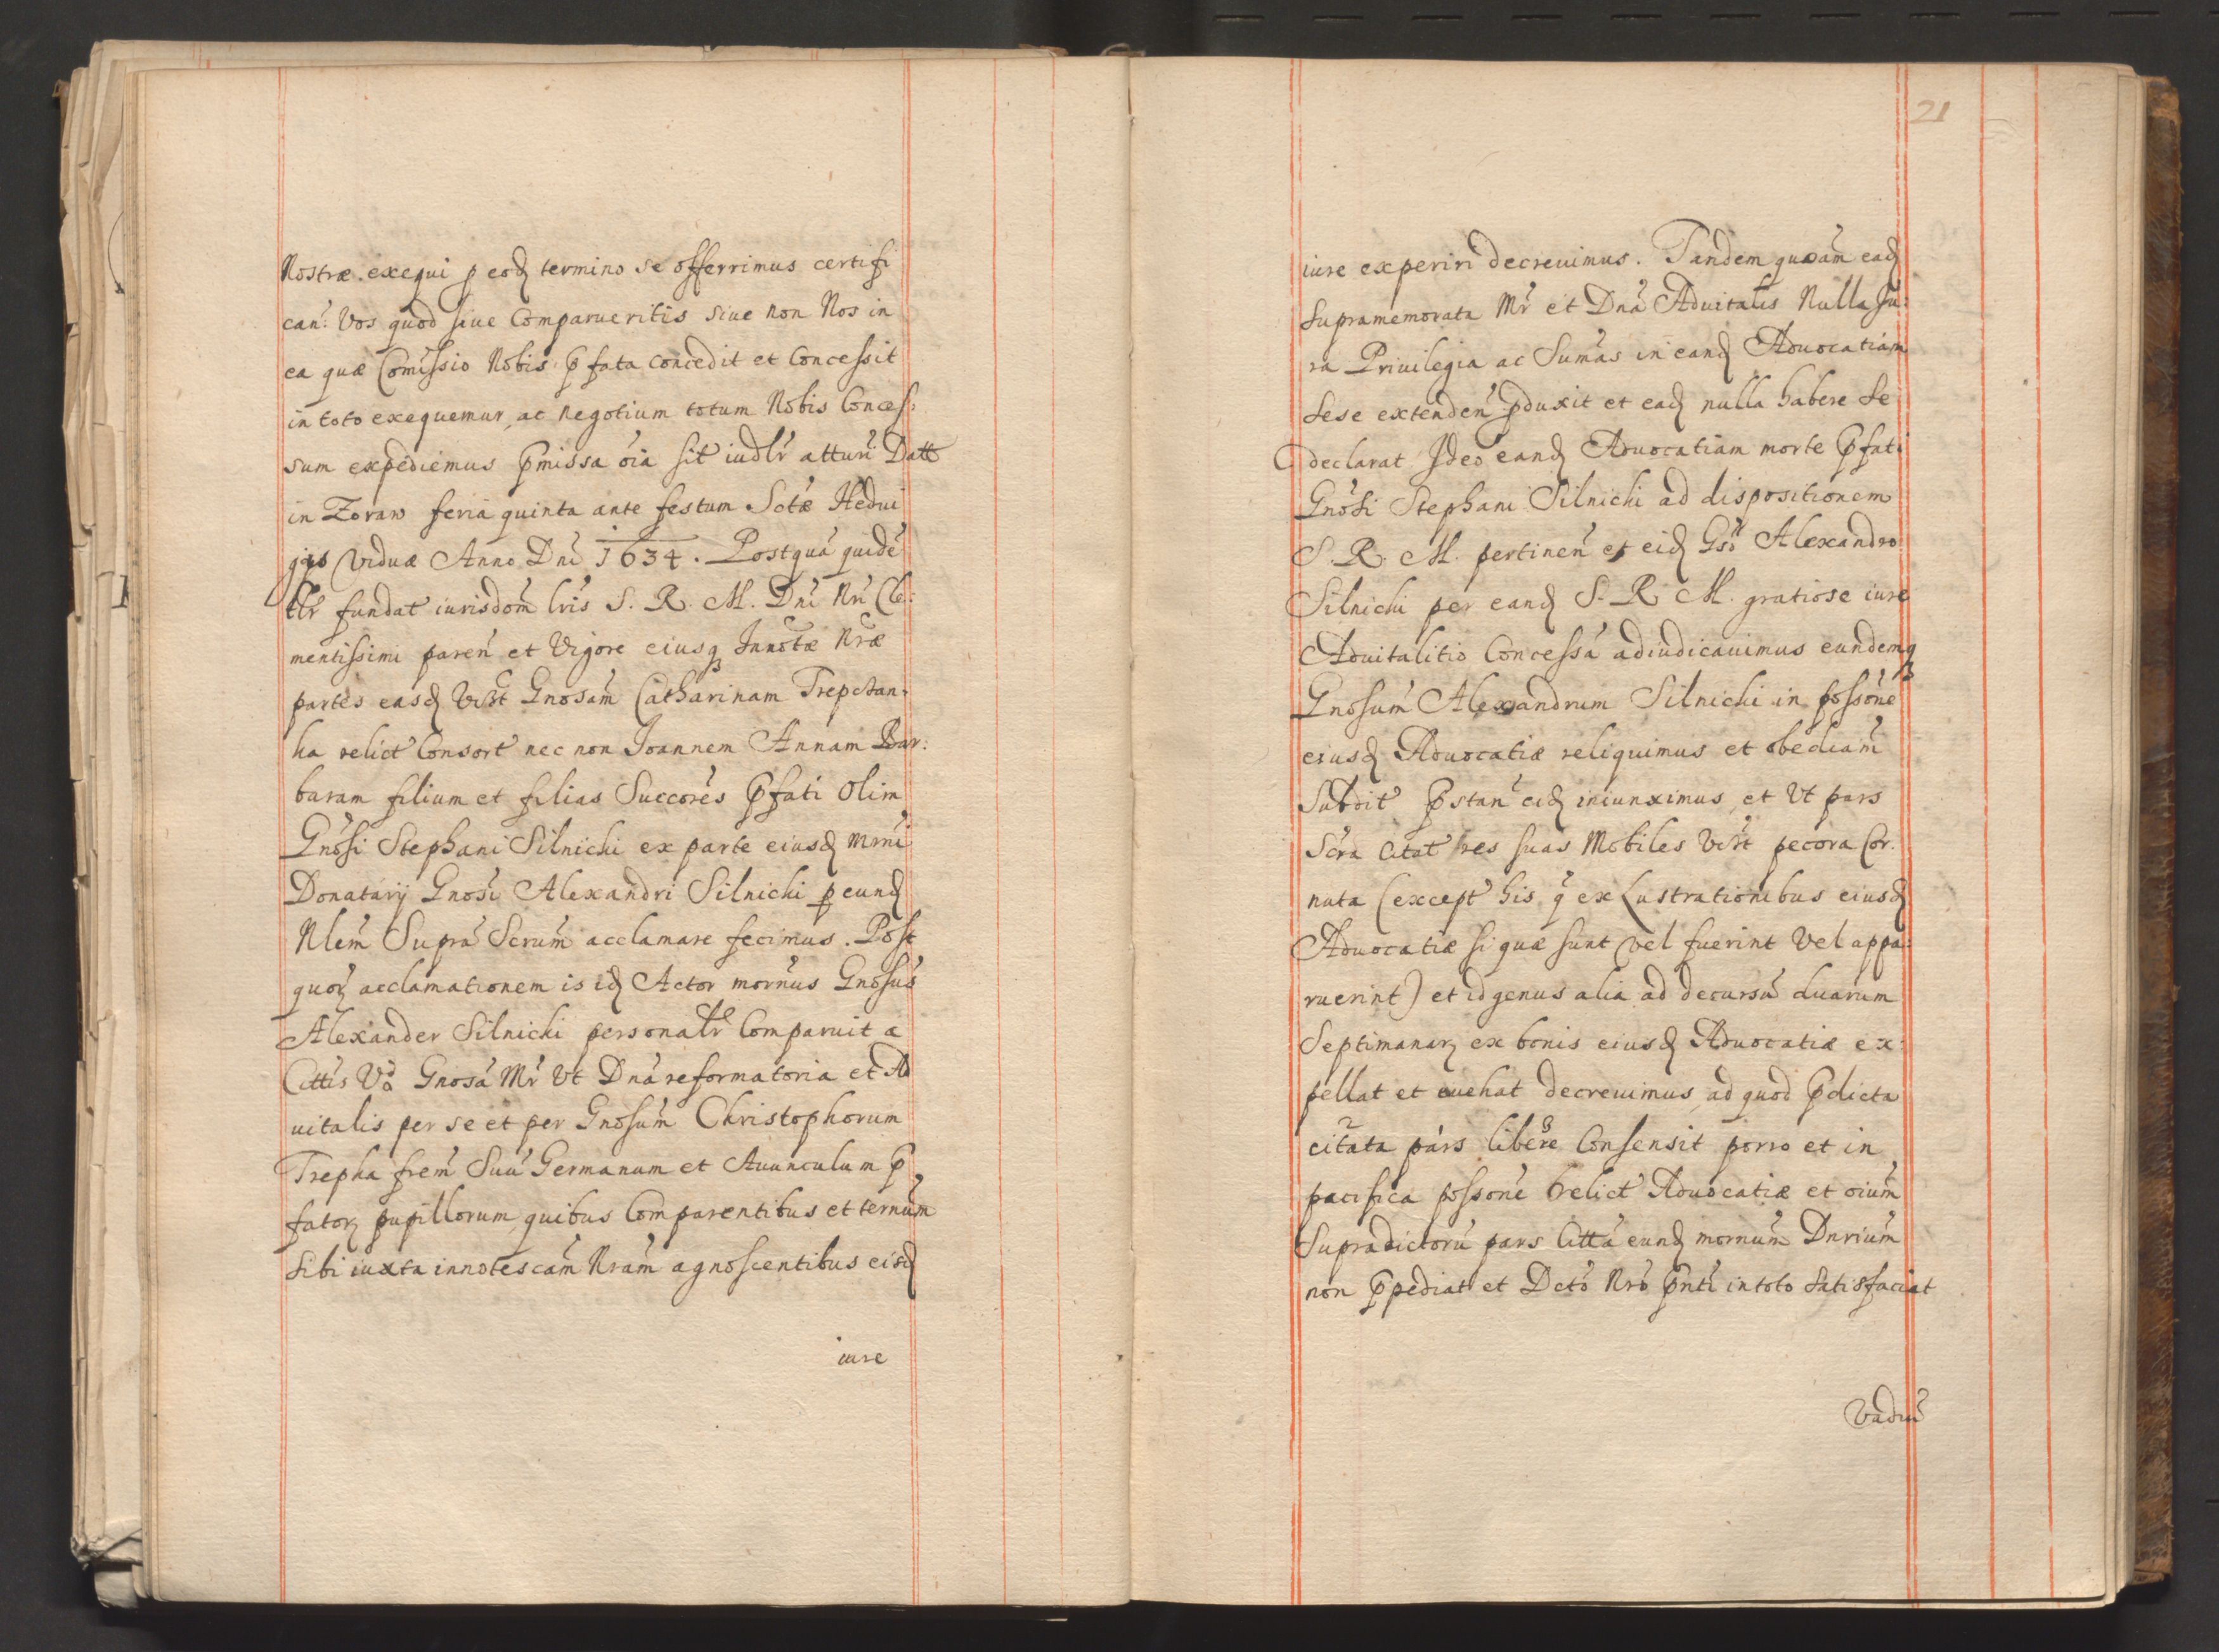 Nostræ exequi p eod termino se offerrimus certifi
can: Vos quod siue Comparueritis siue non Nos in
ea quæ Comissio Nobis pfata concedit et Concessit
in toto exequemur, ac negotium totum Nobis Conces:
sum expediemus pmissa oia sit iudlr atturi Datt
in Zoraw feria quinta ante festum Sctæ Hedui
gis Viduæ Anno Dni 1634. Postquā quidē
tlr fundat iurisdom lris S. R. M. Dni Nri Cle:
mentissimi paren et Vigore eiusq Innotæ Nræ
partes easd Vist Gnosam Catharinam Trepchan:
ha relict Consort nec non Joannem Annam Bar:
baram filium et filias Succores pfati Olim
Gnosi Stephani Silnichi ex parte eiusd Mrni
Donatarij Gnosi Alexandri Silnichi p eund
Nlem Supra Scrum acclamare fecimus. Post
quor acclamationem is id Actor mornus Gnosus
Alexander Silnichi personalr Comparuit a
Cittis Vo Gnosa Mr Vt Dna reformatoria et Ad
uitalis per se et per Gnosum Christophorum
Trepha frem Suū Germanum et Auunculum p
fator pupillorum, quibus Comparentibus et ternum
sibi iuxta innotescam Nram agnoscentibus eisd
iure
21
iure experiri decreuimus. Tandem quoam ead
supramemorata Mr et Dna Aduitalis Nulla Ju:
ra Priuilegia ac Sumas in eand Aduocatiam
sese extenden pduxit et ead nulla habere se
declarat Ideo eand Aduocatiam morte pfati
Gnosi Stephani Silnichi ad dispositionem
S. R. M. pertinen et eid Gso Alexandro
Silnichi per eand S. R. M. gratiose iure
Aduitalitio Concessa adiudicauimus eundemq
Gnosum Alexandrum Silnichi in possone
eiusd Aduocatiæ reliquimus et obediam
Subdit pstan eid iniunximus, et Vt pars
Scra Citat res suas Mobiles Vist pecora Cor:
nuta (except his q ex Lustrationibus eiusd
Aduocatiæ si quæ sunt vel fuerint Vel appa:
ruerint) et id genus alia ad decursū duarum
Septimanar ex bonis eiusd Aduocatiæ ex:
pellat et euehat decreuimus, ad quod pdicta
citata pars libere Consensit porro et in
pacifica possone relict Aduocatiæ et oium
Supradictorū pars Citta eund mornum Dnrium
non ppediat et Dcto Nro pnti in toto satisfaciat
Vadiū